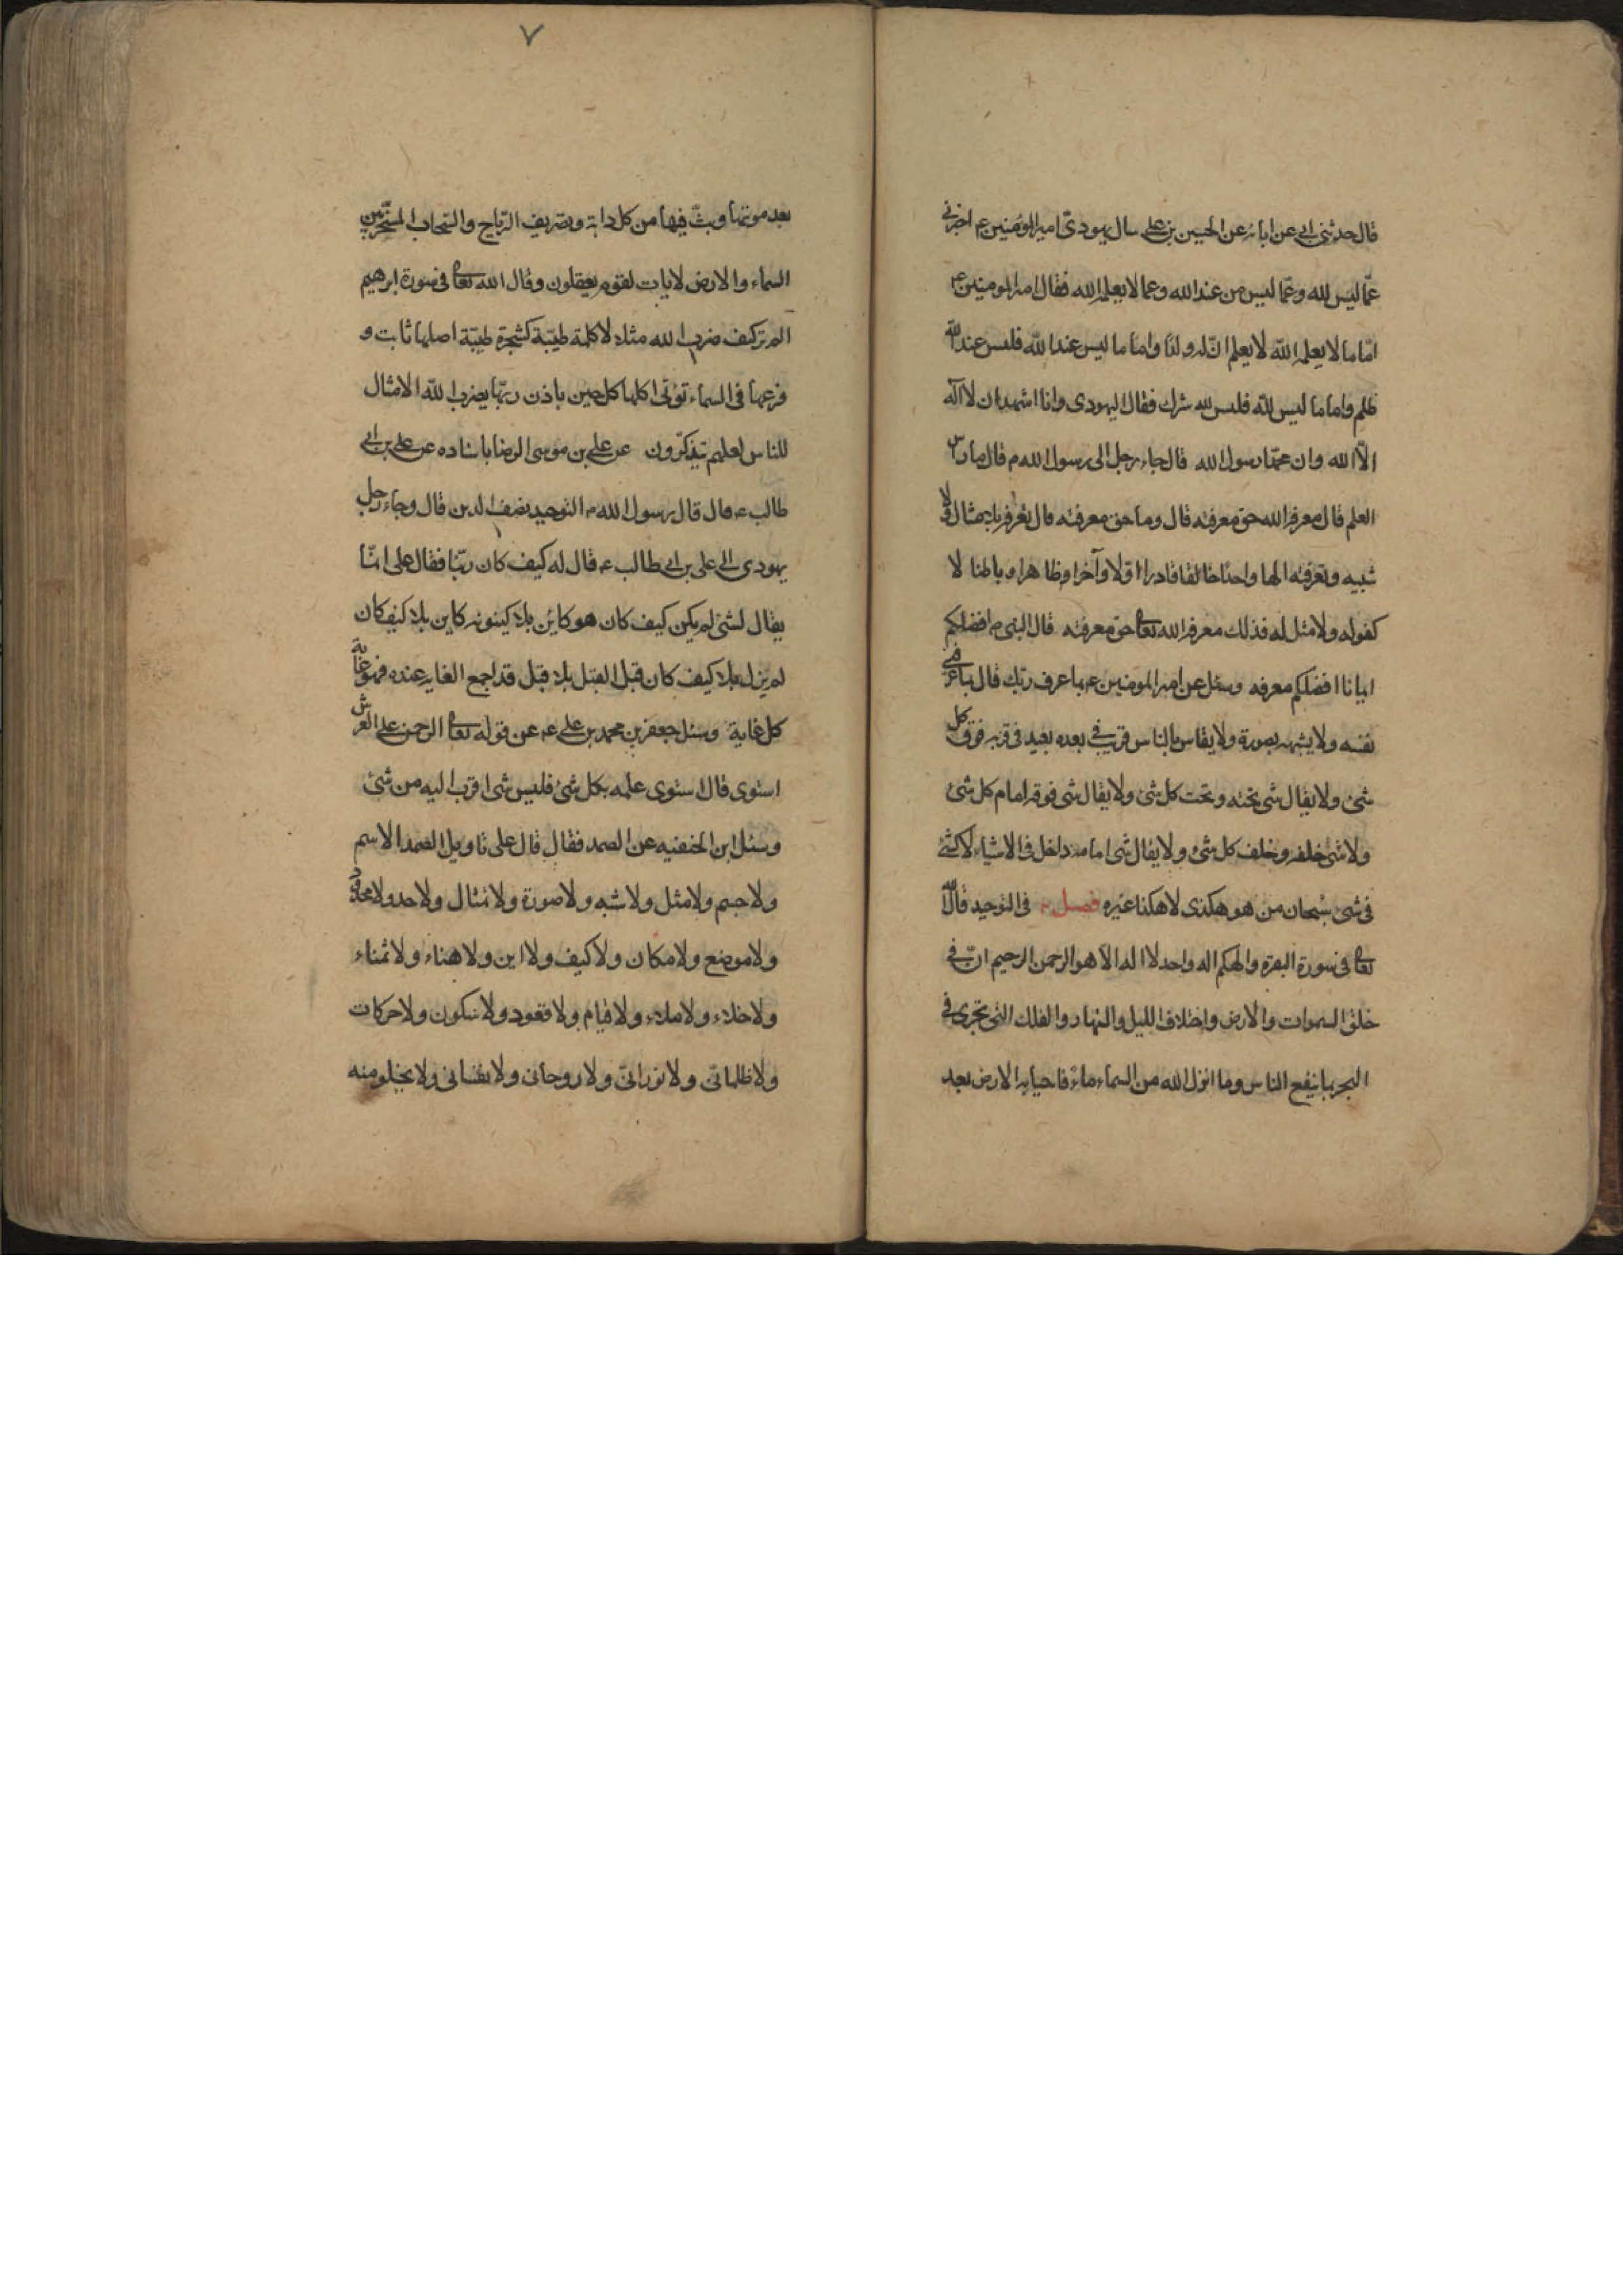 قال حدثنى ابى عن ابائه عن الحسين بن على سال يهودىّ امير المومنين عم اخبرنى
عمّا ليس لله وعمّا ليس من عند الله وعما لا يعلمه الله فقال امير المومنين عم
امّا ما لا يعلمه اللّه لا يعلم انّ له ولدًا واما ما ليس عند اللّه فليس عند اللّه
ظلم واما ما ليس للّه فليس لله شرك فقال اليهودى وانا اشهد ان لا اله
الّا الله وان محمّدا رسول الله قال جاء رجل الى رسول الله م قال ما راس
العلم قال معرفه الله حق معرفته قال وما حق معرفته قال تعرفه بلا مثال ولا
شبيه وتعرفته الها واحدًا خالقا قادرا اوّلا وآخرا وظاهرا وباطنا لا
كفو له ولا مثل له فذلك معرفه الله تعالى حق معرفته قال النبى م افضلكم
ايمانا افضلكم معرفه وسئل عن امير المومنين عم بما عرف ربك قال بما عرفنى
نفسه ولا يشبهه بصورة ولا يقاس بالناس قريب فى بعده بعيد فى قربه فوق كل
شئ ولا يقال شئ تحته وتحت كل شئ ولا يقال شى فوقه امام كل شئ
ولا شئ خلفه وخلف كل شئ ولا يقال شى امامه داخل فى الاشياء لا كشئ
فى شئ سبحان من هو هكذى لا هكذا غيره فصل فى التوحيد قال اللّه
تعالى فى سورة البقره والهكم اله واحد لا اله الا هو الرحمن الرحيم انّ فى
خلق السموات والارض واختلاف الليل والنهار والفلك التى تجرى فى
البحر بما ينفع الناس وما انزل الله من السماء ماءً فاحيا به الارض بعد
٧
بعد موتها وبثّ فيها من كل دابة وتصريف الرّياح والسّحاب المسخّر بين
السماء والارض لايات لقوم يعقلون وقال الله تعالى فى سورة ابرهيم
الم تر كيف ضرب الله مثلا كلمة طيّبة كشجرة طيّبة اصلها ثابت و
فرعها فى السماء تؤتى اكلها كل حين باذن ربّها يضرب اللّه الامثال
للناس لعلهم يتذكّرون عن على بن موسى الرضا باسناده عن على بن ابى
طالب عم قال قال رسول الله م التوحيد نصف الدين قال وجاء رجل
يهودى الى على بن ابى طالب عم قال له كيف كان ربّنا فقال على انّما
يقال لشئ لم يكن كيف كان هو كائن بلا كينونه كاين بلا كيف كان
لم يزل بلا كيف كان قبل القبل بلا قبل قد اجمع الغايه عنده فهو غاية
كل غاية وسئل جعفر بن محمد بن على عم عن قوله تعالى الرحمن على العرش
استوى قال استوى علمه بكل شئ فليس شى اقرب اليه من شئ
وسئل ابن الحنفيه عن الصمد فقال قال على تاويل الصمد لا اسم
ولا جسم ولا مثل ولا شبه ولا صورة ولا تمثال ولا حد ولا محدود
ولا موضع ولا مكان ولا كيف ولا اين ولا هناء ولا ثمناء
ولا خلاء ولا ملاء ولا قيام ولا قعود ولا سكون ولا حركات
ولا ظلمانىّ ولا نورانىّ ولا روحانى ولا نفسانى ولا يخلو منه